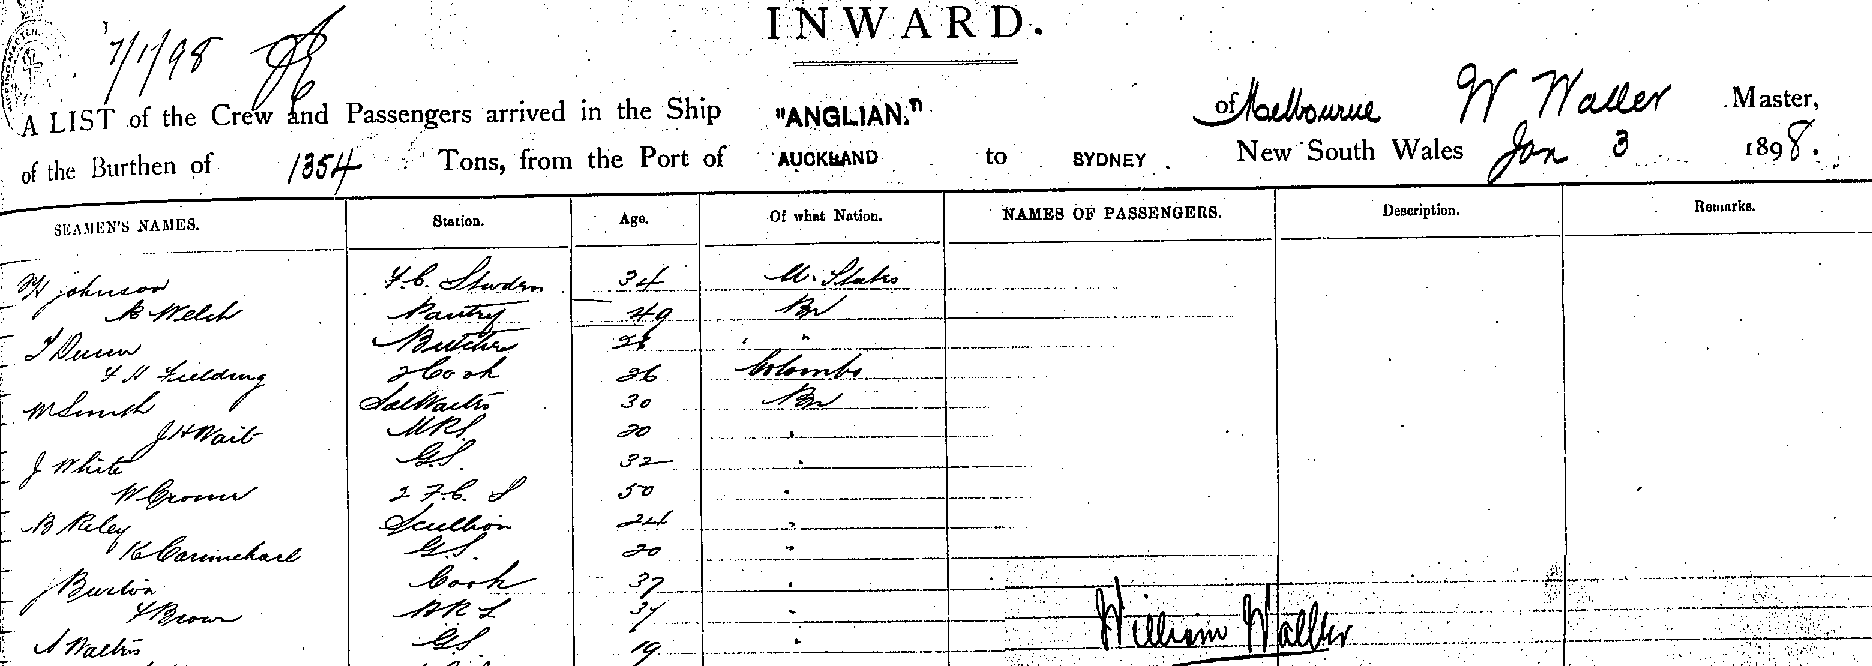 INWARD.
7/1/98
A LIST of the Crew and Passengers arrived in the Ship "ANGLIAN." of Melbourne W Waller Master,
of the Burthen of 1354 Tons, from the Port of AUCKLAND to SYDNEY New South Wales Jan 3 1898.
SEAMEN'S NAMES. Station. Age. Of what Nation. NAMES OF PASSENGERS. Description. Remarks.
H Johnson F.C. 34 U. States
B Welch Pantry 49 Br
T Dunn Butcher "
F H Fielding 2 Cook 26 Colombo
W Smith Sal Waiter 30 Br
J H Wait 20 "
J White G.S. 32 "
W 2 F.C. S 50 "
B Riley Scullion 24 "
K Carmichael G.S. 20 "
J Burton Cook 37 "
F Brown 34 "
A Walters G.S. 19 "
William Waller